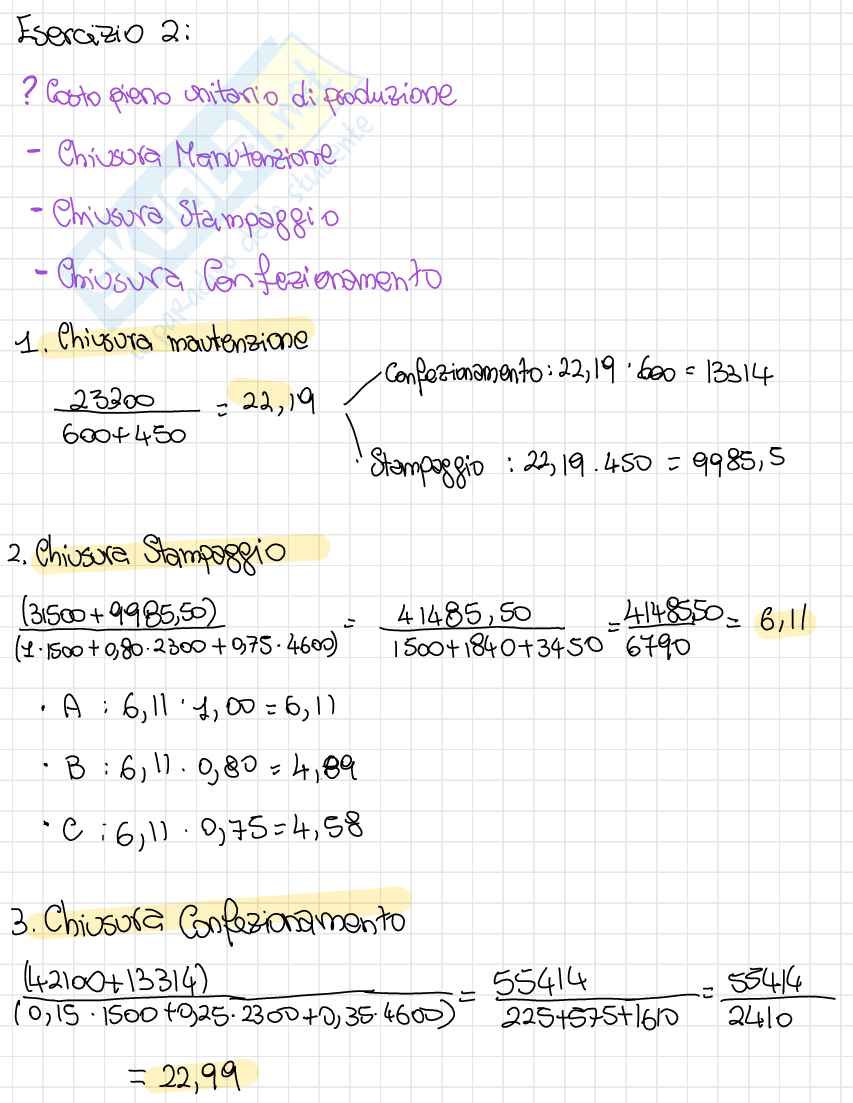 Esercizio 2:
? Costo pieno unitario di produzione
- Chiusura Manutenzione
- Chiusura Stampaggio
- Chiusura Confezionamento
1. Chiusura mautenzione
23300 / 600+450 = 22,19
Confezionamento: 22,19 · 600 = 13314
Stampaggio : 22,19 . 450 = 9985,5
2. Chiusura Stampaggio
(31500+9985,50) / (1·1500+0,80·2300+0,75·4600) = 41485,50 / 1500+1840+3450 = 41485,50 / 6790 = 6,11
· A : 6,11 · 1,00 = 6,11
· B : 6,11 . 0,80 = 4,89
· C : 6,11 . 0,75 = 4,58
3. Chiusura Confezionamento
(42100+13314) / (0,15·1500+0,25·2300+0,35·4600) = 55414 / 225+575+1610 = 55414 / 2410
= 22,99
SKUOLA.net
il paradiso dello studente